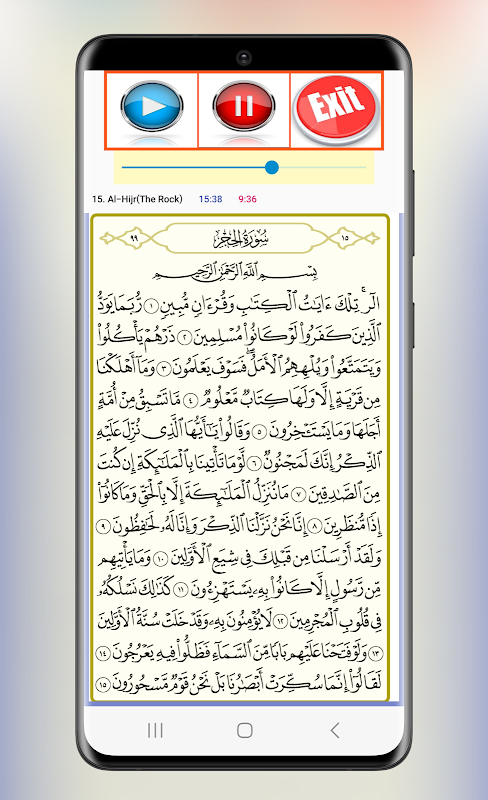 Exit
15. Al-Hijr(The Rock) 15:38 9:36
٩٩ سُورَةُ الحِجْرِ ١٥
بِسْمِ ٱللَّهِ ٱلرَّحْمَٰنِ ٱلرَّحِيمِ
الٓر ۚ تِلْكَ ءَايَٰتُ ٱلْكِتَٰبِ وَقُرْءَانٍ مُّبِينٍ ١ رُّبَمَا يَوَدُّ
ٱلَّذِينَ كَفَرُوا۟ لَوْ كَانُوا۟ مُسْلِمِينَ ٢ ذَرْهُمْ يَأْكُلُوا۟
وَيَتَمَتَّعُوا۟ وَيُلْهِهِمُ ٱلْأَمَلُ ۖ فَسَوْفَ يَعْلَمُونَ ٣ وَمَآ أَهْلَكْنَا
مِن قَرْيَةٍ إِلَّا وَلَهَا كِتَابٌ مَّعْلُومٌ ٤ مَّا تَسْبِقُ مِنْ أُمَّةٍ
أَجَلَهَا وَمَا يَسْتَـْٔخِرُونَ ٥ وَقَالُوا۟ يَٰٓأَيُّهَا ٱلَّذِى نُزِّلَ عَلَيْهِ
ٱلذِّكْرُ إِنَّكَ لَمَجْنُونٌ ٦ لَّوْ مَا تَأْتِينَا بِٱلْمَلَٰٓئِكَةِ إِن كُنتَ
مِنَ ٱلصَّٰدِقِينَ ٧ مَا نُنَزِّلُ ٱلْمَلَٰٓئِكَةَ إِلَّا بِٱلْحَقِّ وَمَا كَانُوٓا۟
إِذًا مُّنظَرِينَ ٨ إِنَّا نَحْنُ نَزَّلْنَا ٱلذِّكْرَ وَإِنَّا لَهُۥ لَحَٰفِظُونَ ٩
وَلَقَدْ أَرْسَلْنَا مِن قَبْلِكَ فِى شِيَعِ ٱلْأَوَّلِينَ ١٠ وَمَا يَأْتِيهِم
مِّن رَّسُولٍ إِلَّا كَانُوا۟ بِهِۦ يَسْتَهْزِءُونَ ١١ كَذَٰلِكَ نَسْلُكُهُۥ
فِى قُلُوبِ ٱلْمُجْرِمِينَ ١٢ لَا يُؤْمِنُونَ بِهِۦ ۖ وَقَدْ خَلَتْ سُنَّةُ ٱلْأَوَّلِينَ
١٣ وَلَوْ فَتَحْنَا عَلَيْهِم بَابًا مِّنَ ٱلسَّمَآءِ فَظَلُّوا۟ فِيهِ يَعْرُجُونَ ١٤
لَقَالُوٓا۟ إِنَّمَا سُكِّرَتْ أَبْصَٰرُنَا بَلْ نَحْنُ قَوْمٌ مَّسْحُورُونَ ١٥